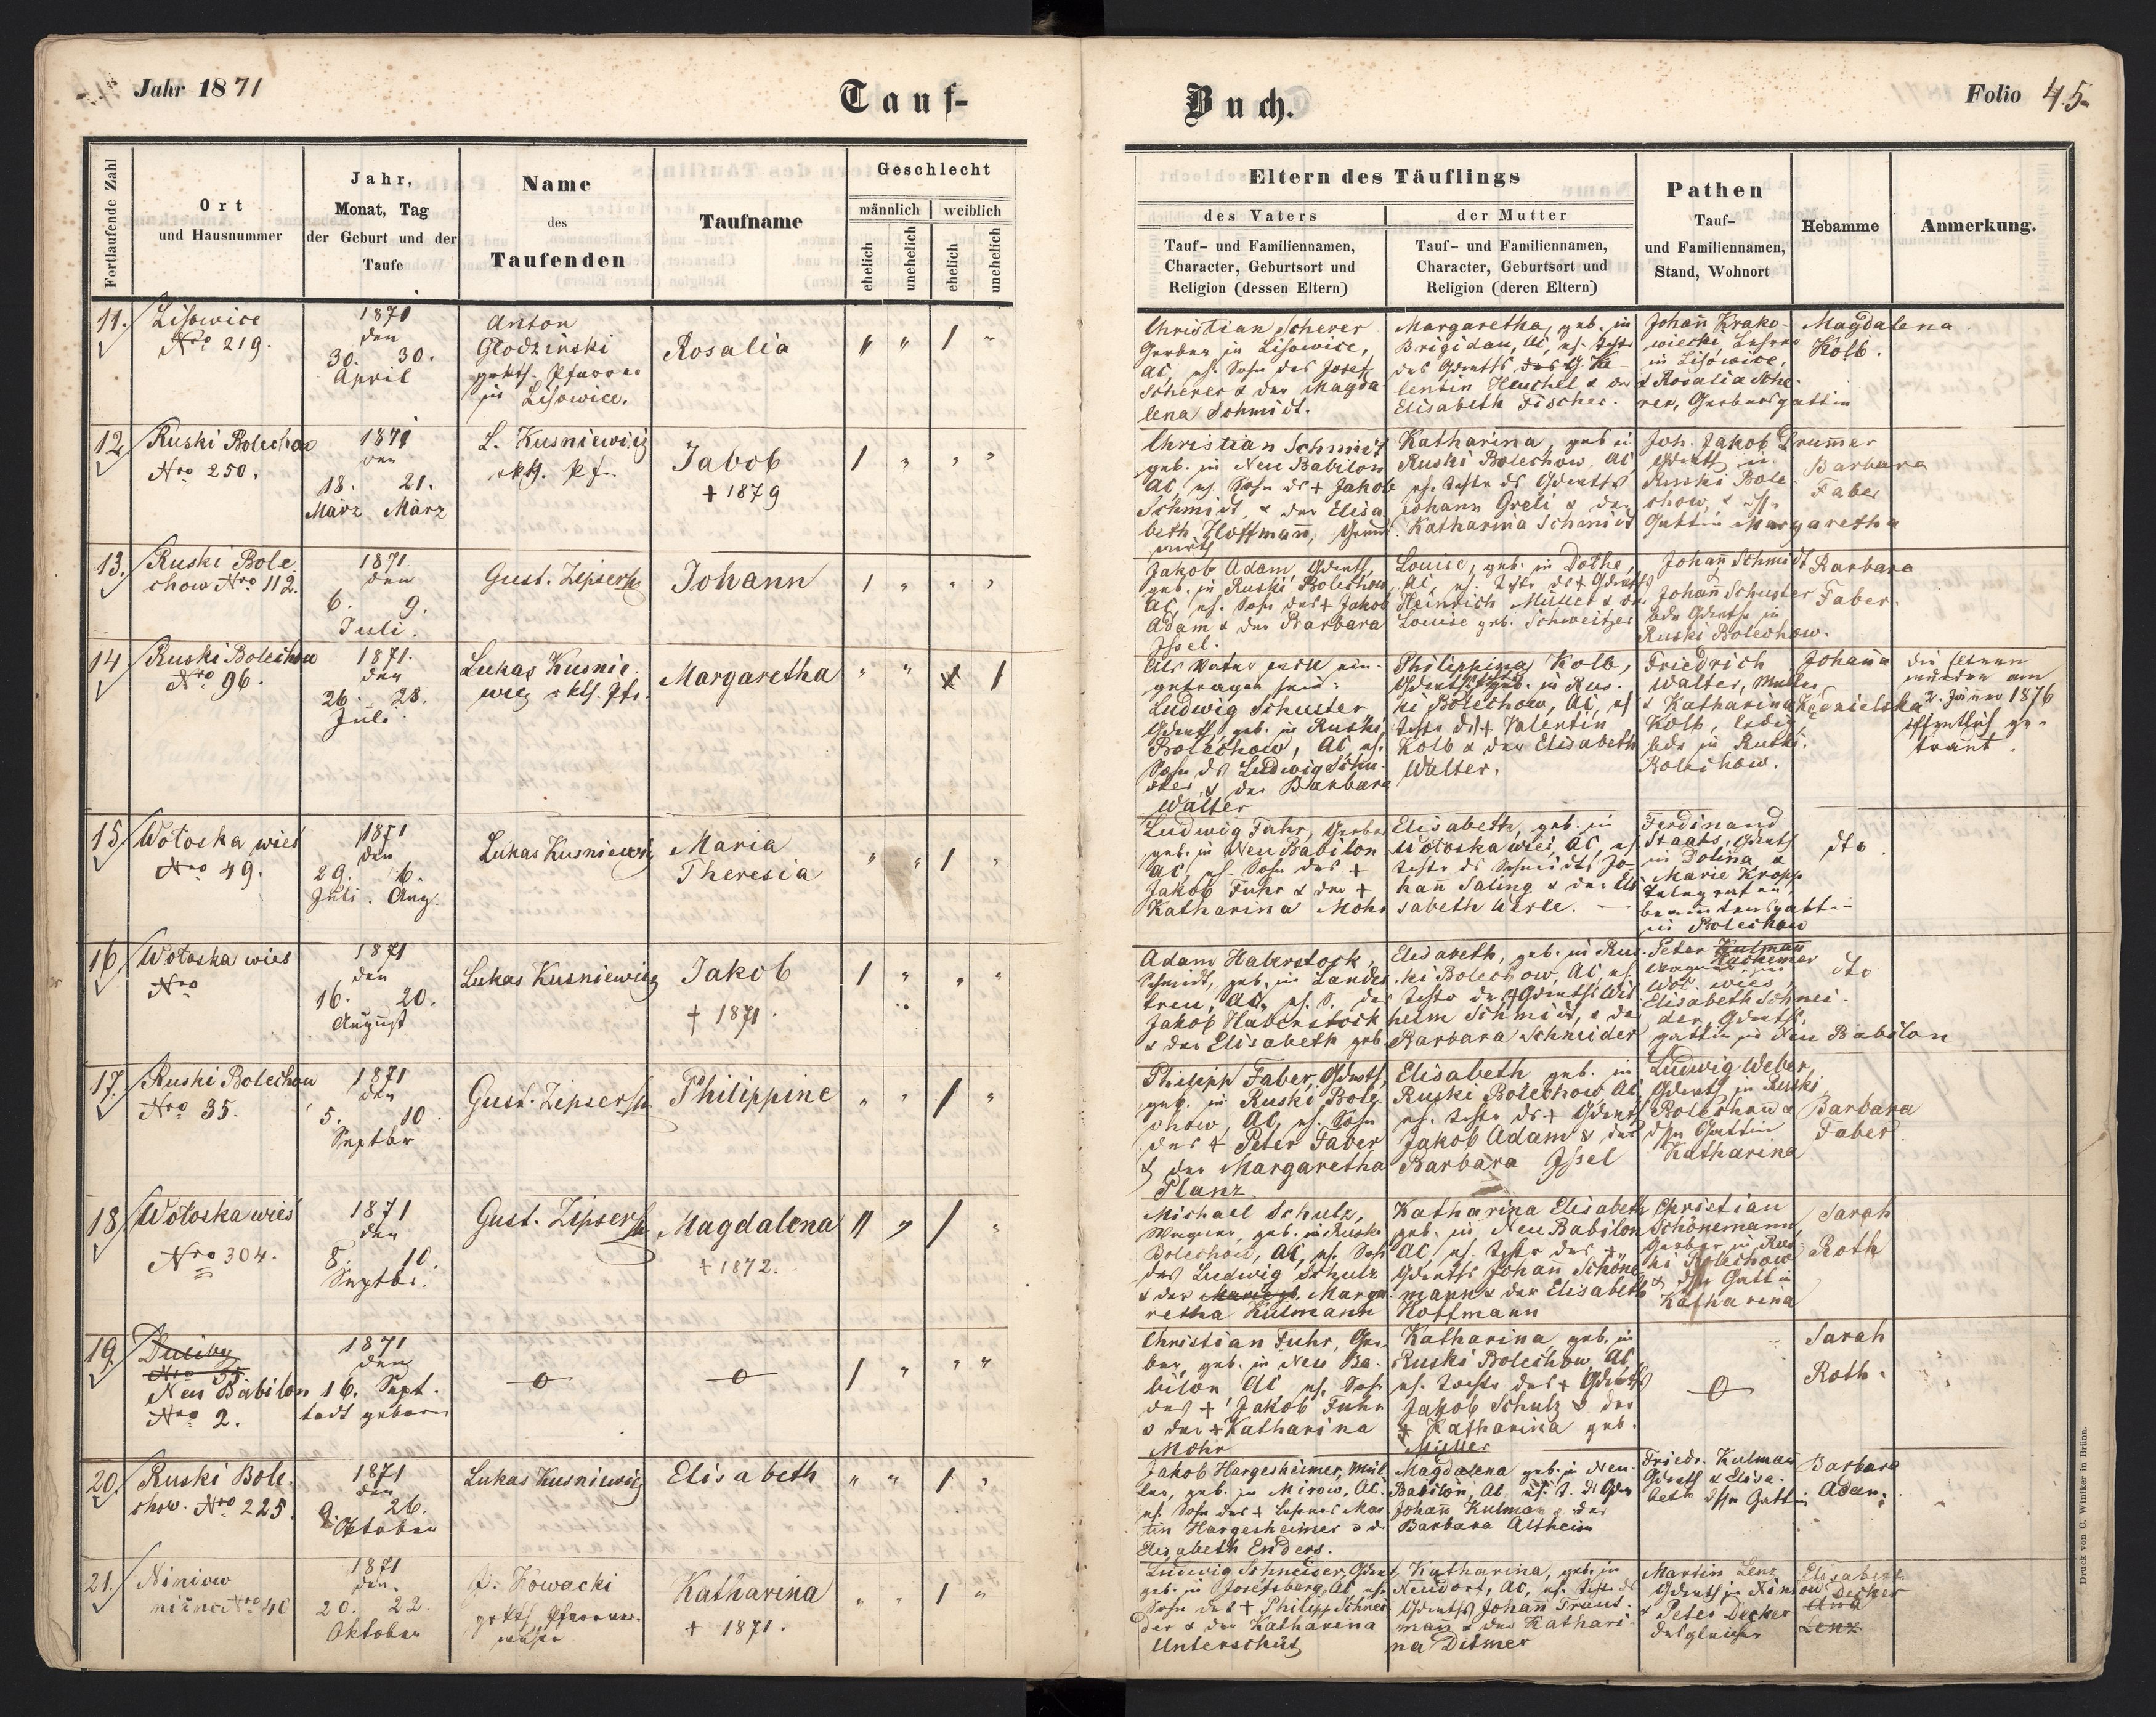 Jahr 1871
Tauf-
Buch.
Folio 45.
Fortlaufende Zahl
Ort
und Hausnummer
Jahr,
Monat, Tag
der Geburt und der
Taufe
Name
des
Taufenden
Taufname
Geschlecht
männlich
weiblich
ehelich
unehelich
ehelich
unehelich
Eltern des Täuflings
des Vaters
Tauf- und Familiennamen,
Character, Geburtsort und
Religion (dessen Eltern)
der Mutter
Tauf- und Familiennamen,
Character, Geburtsort und
Religion (deren Eltern)
Pathen
Tauf-
und Familiennamen,
Stand, Wohnort
Hebamme
Anmerkung.
11.
Lisowice
Nro 219.
1871
den
30. 30.
April
Anton
Glodzinski
Pfarrer
in Lisowice.
Rosalia
" " 1 "
Christian Scherer
Gerber in Lisowice,
AC, eh. Sohn des Josef
Scherer & der Magda
lena Schmidt.
Margaretha, geb. in
Brigidau, AC, eh. Tochter
des Grdwrths
lentin Heuchel & der
Elisabeth Fischer.
Johann Krako-
wiecki Lehrer
in Lisowice,
& Rosalia Sche-
rer, Gerbersgattin
Magdalena
Kolb.
12
Ruski Bolechow
Nro 250.
1871
den
18. 21.
März März
L. Kusniewicz
rkth. Pfr.
Jakob
+ 1879
1 " " "
Christian Schmidt
geb. in Neu Babilon
AC, eh. Sohn ds + Jakob
Schmidt, & der Elisa
beth Hoffmann, Grund
wirth
Katharina, geb in
Ruski Bolechow, AC
eh. Tochter ds Grdwrths
Johann Greli & der
Katharina Schmidt
Joh. Jakob Drummer
Grdwrth in
Ruski Bole
chow, &
Gattin Margaretha
Barbara
Faber
13.
Ruski Bole
chow Nro 112.
1871.
den
6. 9.
Juli.
Gust. Zipser
Johann
1 " " "
Jakob Adam, Grdwrth,
geb. in Ruski Bolechow
AC, eh. Sohn des + Jakob
Adam & der Barbara
Issel.
Louise, geb. in Dothe,
AC, eh. Tochter des + Grdwrths
Heinrich Müller & der
Louise geb. Schweitzer
Johann Schmidt
Johann Schuster
beide Grdwrthe in
Ruski Bolechow.
Barbara
Faber.
14
Ruski Bolechow
Nro 96.
1871.
den
26. 28.
Juli.
Lukas Kusnie
wicz rkth. Pfr.
Margaretha
" " 1
Als Vater will ein-
getragen sein:
Ludwig Schuster
Grdwrth, geb. in Ruski
Bolechow, AC, eh.
Sohn ds Ludwig Schu-
ster, & der Barbara
Walter
Philippina Kolb,
geb. in Rus.
ki Bolechow, AC, eh
Tochter ds + Valentin
Kolb & der Elisabeth
Walter.
Friedrich
Walter, Müller
& Katharina
Kolb, ledig,
beide in Ruski
Bolechow.
Johanna
Kędzielska
die Eltern
wurden am
2. Jänner 1876
öffentlich ge-
traut.
15
Wołoska wieś
Nro 49.
1871
den
29. 6.
Juli. Aug.
Lukas Kusniewicz
Maria
Theresia
" " 1 "
Ludwig Fuhr, Gerber
geb. in Neu Babilon
AC, eh. Sohn des +
Jakob Fuhr & der +
Katharina Mohr
Elisabeth, geb. in
Wołoska wieś, AC, eh
Tochter ds Schmidts Jo-
hann Saling & der Eli
sabeth Werle.
Ferdinand
Staats, Grdwrth
in Dolina &
Marie Kropp
Telegrafen
beamtensgattin
in Bolechow
dto.
16
Wołoska wieś
Nro
1871
den
16. 20.
August
Lukas Kusniewicz
Jakob
+ 1871.
1 " " "
Adam Haberstock,
Schmidt, geb. in Landes
treu, AC, eh. S. des
Jakob Haberstock
& der Elisabeth geb.
Elisabeth, geb. in Rus-
ki Bolechow, AC, eh.
Tochter des + Grdwrths Wil
helm Schmidt, & der
Barbara Schneider
Peter Kulmann
Wagner in
Woł. wieś,
Elisabeth Schnei-
der, Grdwrths.
gattin in Neu Babilon
dto
17.
Ruski Bolechow
Nro 35.
1871
den
5. 10
Septber
Gust. Zipser
Philippine
" " 1 "
Philipp Faber, Grdwrth,
geb. in Ruski Bole
chow, AC, eh. Sohn
des + Peter Faber
& der Margaretha
Planz.
Elisabeth geb. in
Ruski Bolechow, AC
eh. Tochter ds + Grdwrth
Jakob Adam & der
Barbara Issel
Ludwig Weber,
Grdwrth in Ruski
Bolechow &
Gattin
Katharina
Barbara
Faber
18
Wołoska wieś
Nro 304.
1871
den
8. 10.
Septbr.
Gust. Zipser
Magdalena
+ 1872.
" " 1 "
Michael Schulz,
Wagner, geb. in Ruski
Bolechow, AC, eh. Sohn
des Ludwig Schulz
& der Marga
retha Kulmann
Katharina Elisabeth
geb. in Neu Babilon
AC, eh. Tochter des +
Grdwrths Johann Schöne
mann & der Elisabeth
Hoffmann
Christian
Schönemann,
Gerber in Rus
ki Bolechow
& Gattin
Katharina
Sarah
Roth
19.
Duliby
Nro 35
Neu Babilon
Nro 2.
1871
den
16. Sept.
todt geboren
0
0
1 " " "
Christian Fuhr, Ger
ber, geb. in Neu Ba-
bilon AC eh. Sohn
des + Jakob Fuhr
& der + Katharina
Mohr
Katharina, geb. in
Ruski Bolechow, AC
eh. Tochter des + Grdwrths
Jakob Schulz & der
+ Katharina geb.
Müller
0
Sarah
Roth.
20.
Ruski Bole.
chow. Nro 225.
1871
den
9. 26.
Oktober
Lukas Kusniewicz
Elisabeth
" " 1 "
Jakob Hargesheimer, Mül
ler, geb. in Mirow, AC.
eh. Sohn des + Lehrers Mar
tin Hargesheimer & d
Elisabeth Enders.
Magdalena geb. in Neu-
Babilon, AC eh. T. ds Grdw
Johann Kulmann & der
Barbara Altheim
Friedr. Kulmann
Grdwrth & Elisa-
beth Gattin
Barbara
Adam.
21.
Niniow
niżne Nro 40
1871
den.
20. 22.
Oktober
J. Nowacki
Katharina
+ 1871.
" " 1 "
Ludwig Schneider, Grdwrt
geb. in Josefsberg, AC eh.
Sohn des + Philipp Schnei
der & der Katharina
Unterschütz
Katharina, geb. in
Neudorf, AC, eh. Tochter ds
Grdwrths Johann Traut.
mann & der Kathari-
na Ditmer
Martin Lenz
Grdwrth in Niniow
& Peter Decker
desgleichen
Elisabeth
Decker
Lenz
Druck von C. Winiker in Brünn.